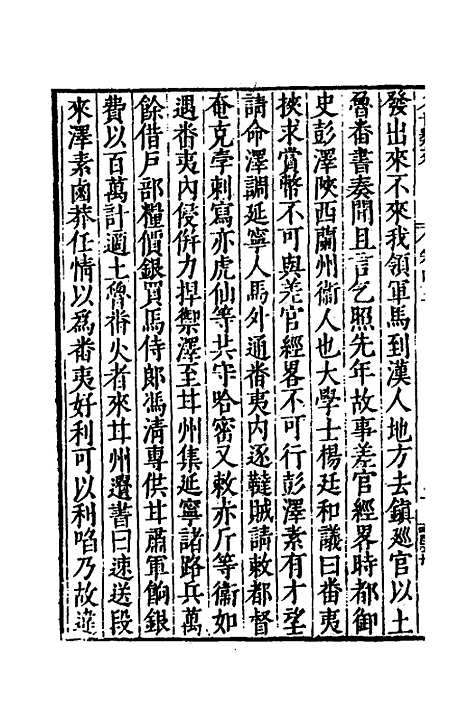 發出來不來我領軍馬到漢人地方去鎮廵官以土
魯畨書奏聞且言乞照先年故事差官經畧時都御
史彭澤陝西蘭州衞人也大學士楊廷和議曰畨夷
挾求賞幣不可與差官經畧不可行彭澤素有才望
請命澤調延寧人馬外通畨夷内逐韃賊請敕都督
奄克孛剌寫亦虎仙等共守哈密又敕赤斤等衞如
遇畨夷内侵倂力捍禦澤至甘州集延寧諸路兵萬
餘借戸部糧價銀買馬侍郎馮清專供甘肅軍餉銀
費以百萬計適土魯畨火者來甘州遺書曰速送段
來澤素鹵莽任情以爲畨夷好利可以利啗乃故違